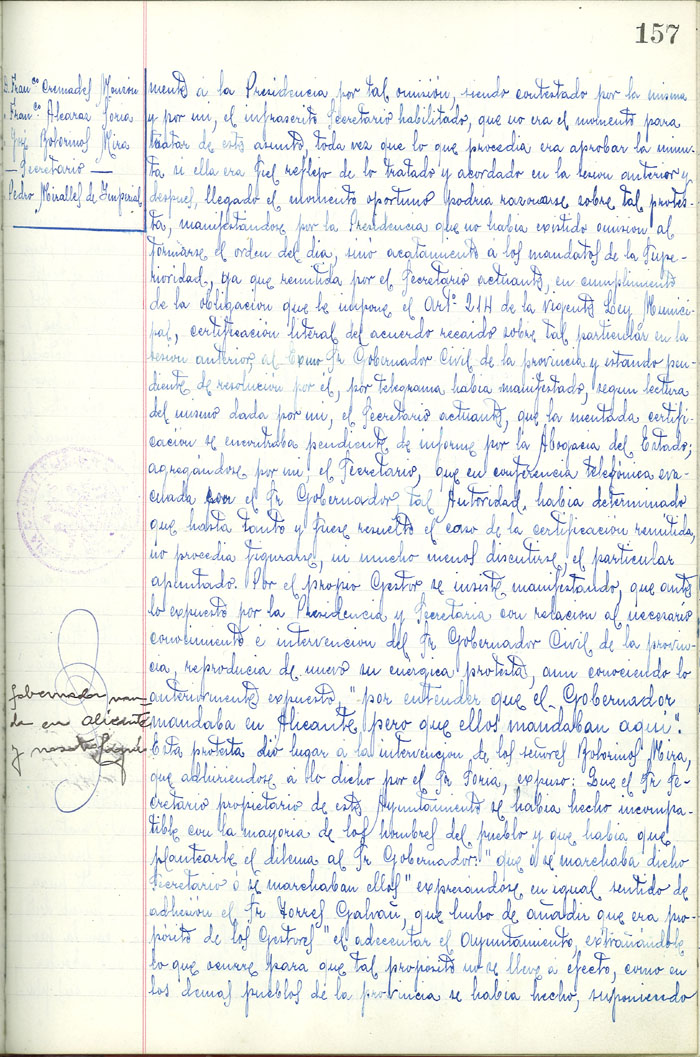 157
D. Franco Cremades Monzón
" Franco Alcaraz Soria
" José Boborinos Mira
— Secretario —
Pedro Miralles de Imperial
mente á la Presidencia por tal omisión, siendo contestado por la misma
y por mi, el infrascrito Secretario habilitado, que no era el momento para
tratar de este asunto, toda vez que lo que procedía era aprobar la minu-
ta se ella era fiel reflejo de lo tratado y acordado en la sesion anterior y
despues, llegado el momento oportuno podria razonarse sobre tal protes-
ta, manifestandose por la Presidencia que no habia existido omision al
formarse el orden del dia, sinó acatamiento a los mandatos de la Supe-
rioridad, ya que remitida por el Secretario actuante, en cumplimiento
de la obligacion que le impone el Artº 214 de la vigente Ley Munici-
pal, certificación literal del acuerdo recaido sobre tal particular en la
sesion anterior, al Excmo Sr Gobernador Civil de la provincia y estando pen-
diente de resolucion por él, por telegrama habia manifestado, segun lectura
del mismo dada por mi, el Secretario actuante, que la mentada certifi-
cacion se encontraba pendiente de informe por la Abogacia del Estado;
agregándose por mi el Secretario, que en conferencia telefónica eva-
cuada por el Sr Gobernador tal Autoridad, habia determinado
que hasta tanto y fuese resuelto el caso de la certificacion remitida,
no procedia figurarse, ni mucho menos discutirse, el particular
apuntado. Por el propio Gestor se insiste manifestando, que ante
lo expuesto por la Presidencia y Secretaria con relacion al necesario
conocimiento é intervencion del Sr Gobernador Civil de la provin-
cia, reproducia de nuevo su enérgica protesta, aun conociendo lo
anteriormente expuesto, "por entender que el Gobernador
mandaba en Alicante, pero que ellos mandaban aqui".
Esta protesta dió lugar a la intervencion de los señores Boborinos Mira,
que adhiriendose a lo dicho por el Sr Soria, expuso: Que el Sr Se-
cretario propietario de este Ayuntamiento se habia hecho incompa-
tible con la mayoria de los hombres del pueblo y que habia que
plantearle el dilema al Sr Gobernador: "que ó se marchaba dicho
Secretario ó se marchaban ellos" expresándose en igual sentido de
adhesión el Sr Torres Galvañ, que hubo de añadir que era pro-
pósito de los Gestores "el adecentar el Ayuntamiento, extrañándole
lo que ocurre para que tal propósito no se lleve á efecto, como en
los demas pueblos de la provincia se habia hecho, suponiendo
Gobernador man-
da en Alicante
y nosotros aquí